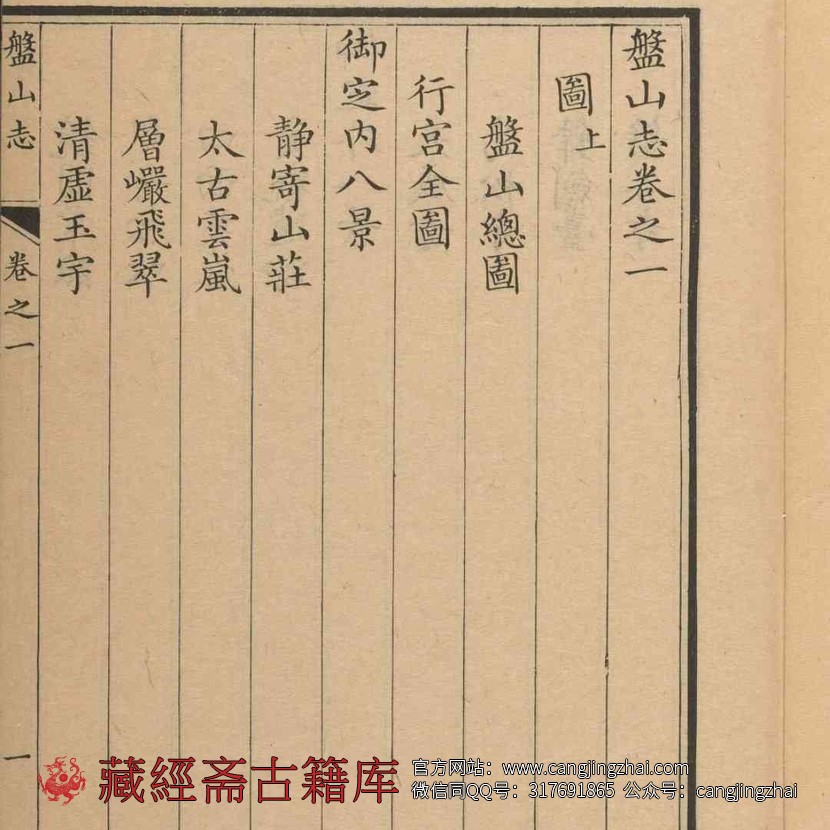 盤山志卷之一
圖上
盤山總圖
行宮全圖
御定内八景
靜寄山莊
太古雲嵐
層巖飛翠
清虛玉宇
盤山志
卷之一
一
藏經斋古籍库
官方网站：www.cangjingzhai.com
微信同QQ号：317691865 公众号：cangjingzhai